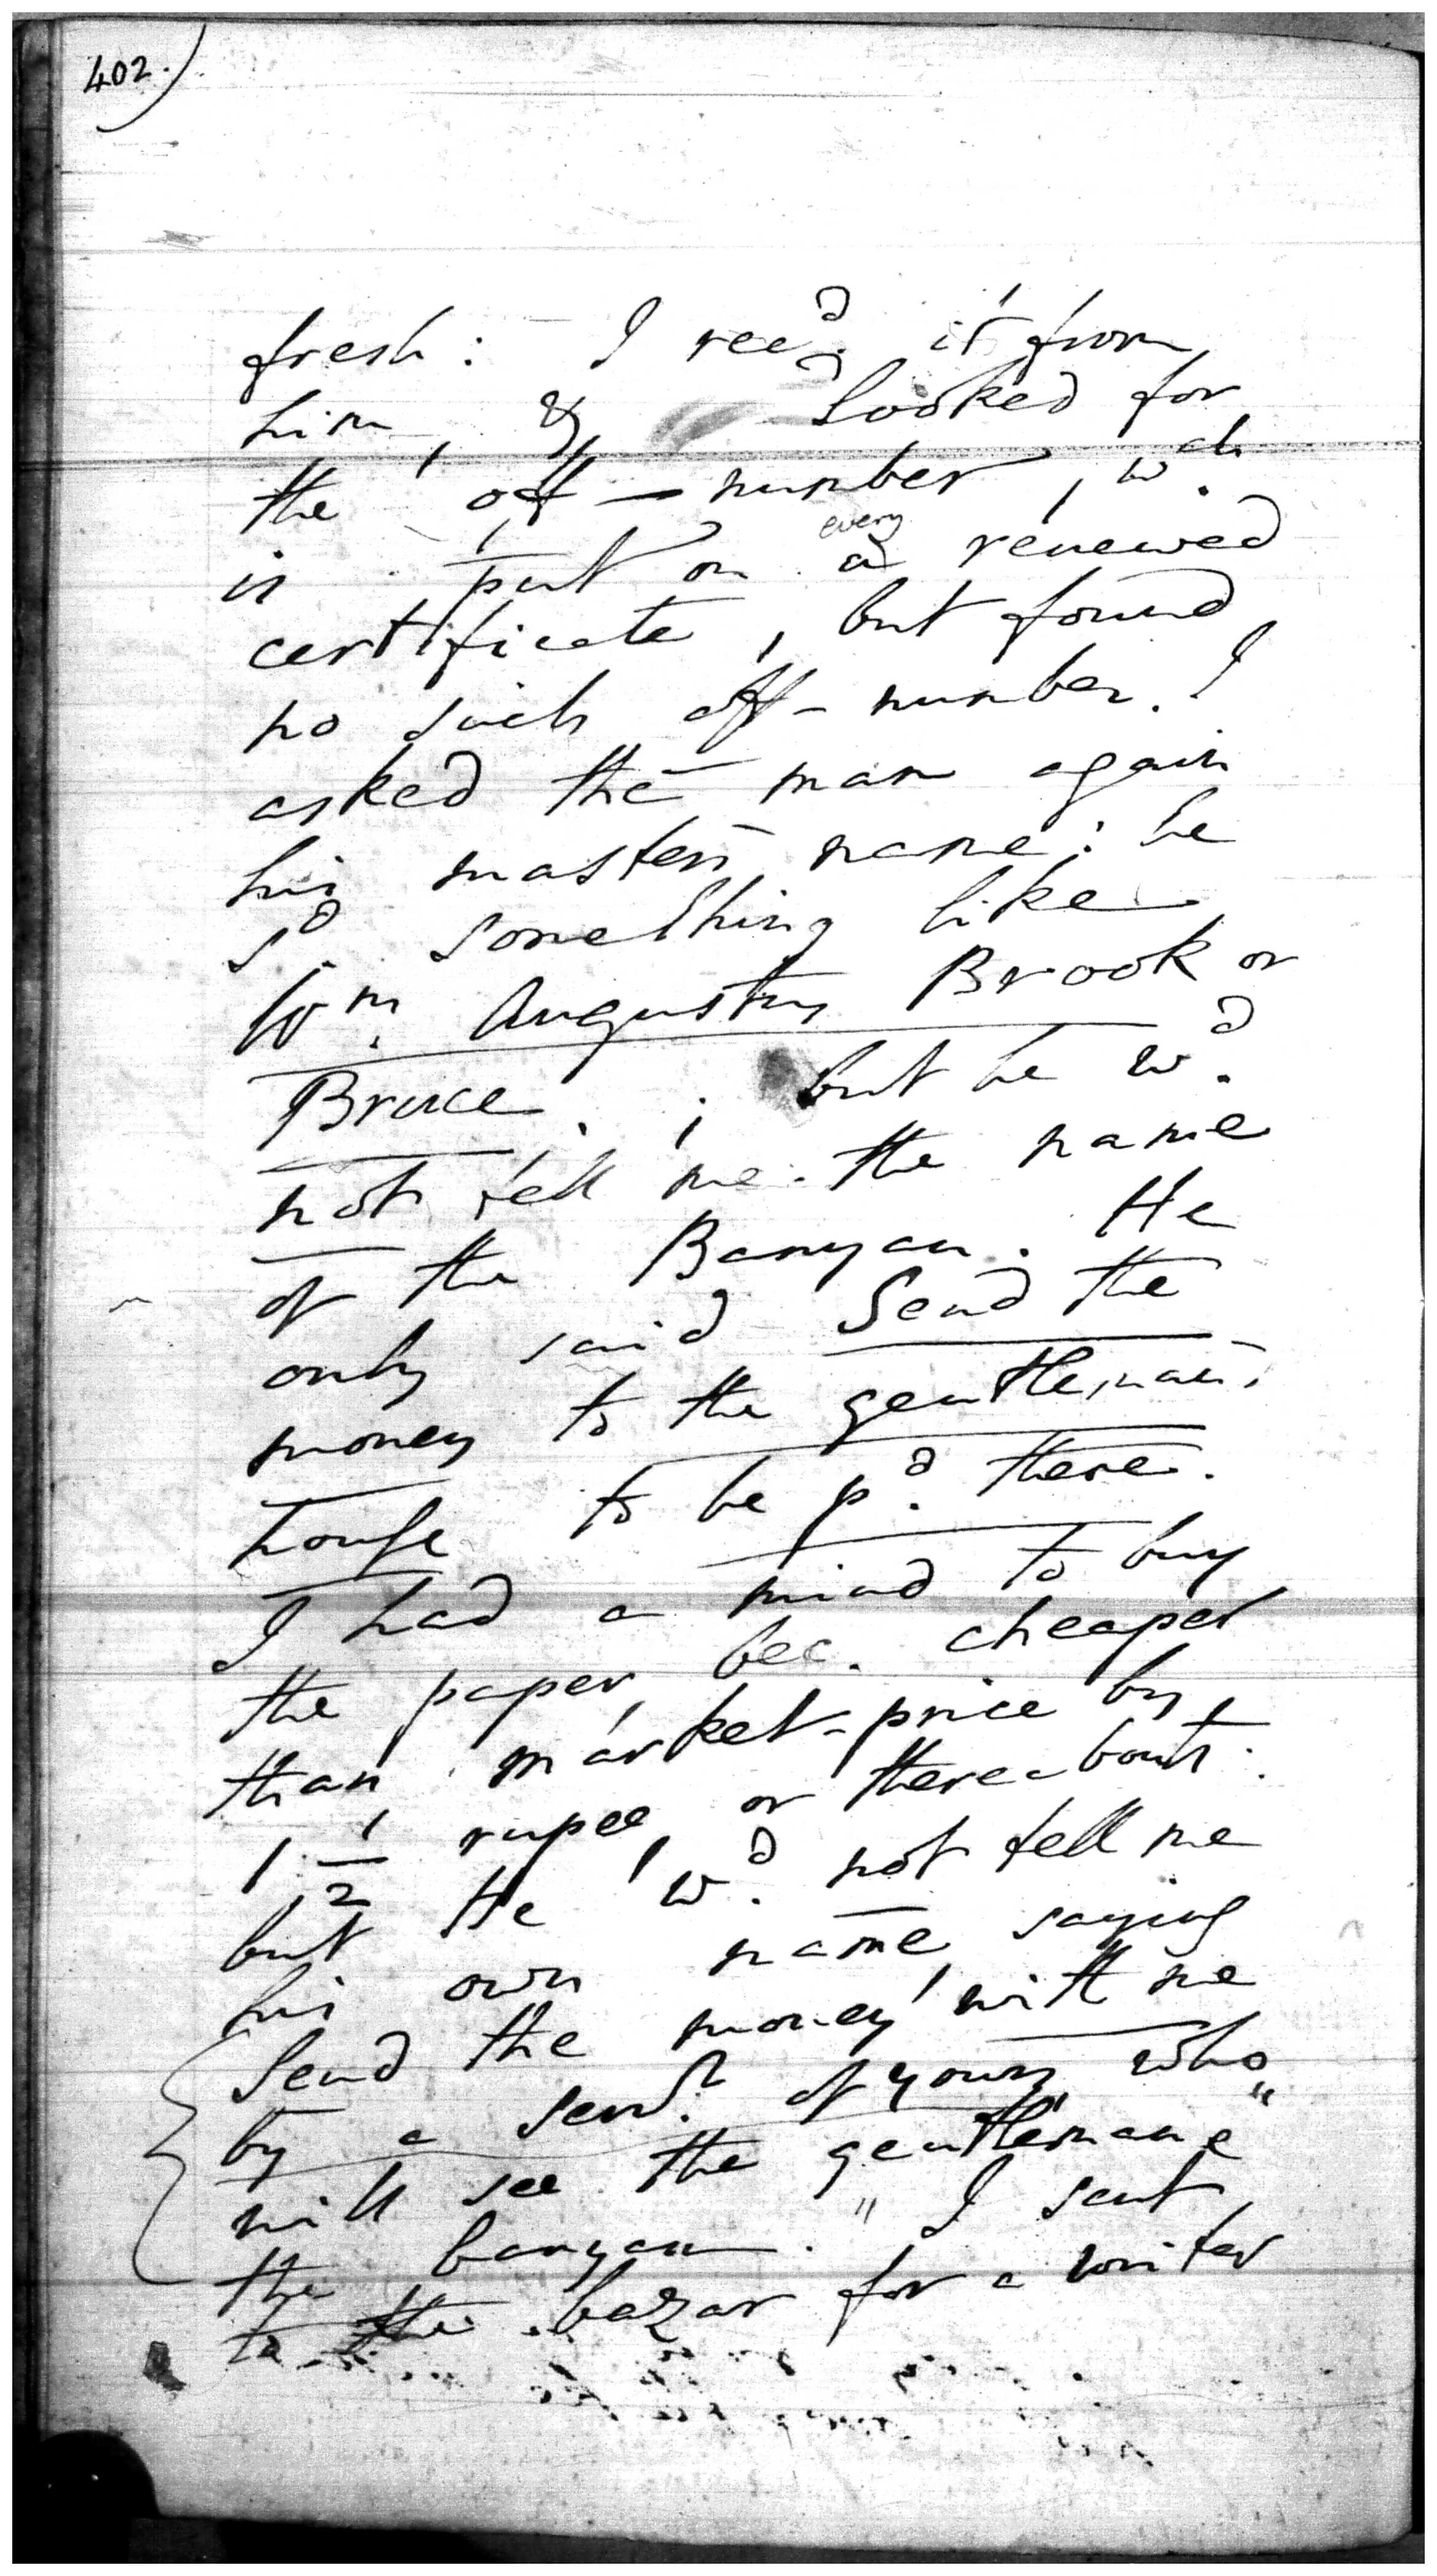 402.)
fresh: I rec.d it from
him, & looked for
the off-number, w.ch
is put on a every renewed
certificate, but found
no such off-number. I
asked the man again
his master's name: he
s.d something like
W.m Augustus Brook or
Bruce. ; but he w.d
not tell me the name
of the Banyan. He
only said Send the
money to the gentleman's
house to be p.d there.
I had a mind to buy
the paper, bec. cheaper
than market-price by
1 1/2 rupee, or thereabouts.
but He w.d not tell me
his own name, saying
Send the money with me
by a serv.t of yours who
will see the gentleman &
the banyan." I sent
to the bazar for a writer